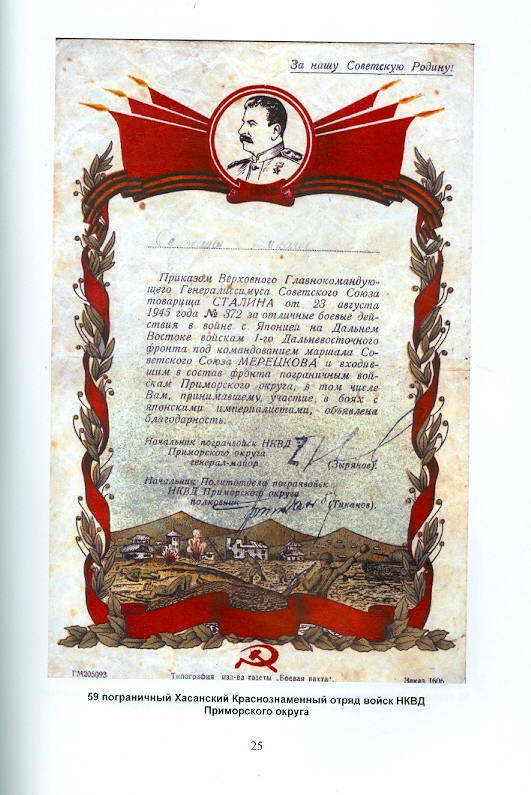 За нашу Советскую Родину!
Приказом Верховного Главнокомандую-
щего Генералиссимуса Советского Союза
товарища СТАЛИНА от 23 августа
1945 года № 372 за отличные боевые дей-
ствия в войне с Японией на Дальнем
Востоке войскам 1-го Дальневосточного
фронта под командованием маршала Со-
ветского Союза МЕРЕЦКОВА и входив-
шим в состав фронта пограничным вой-
скам Приморского округа, в том числе
Вам, принимавшему, участие в боях с
японскими империалистами, объявлена
благодарность.
Начальник погранвойск НКВД
Приморского округа
генерал-майор (Зырянов).
Начальник Политотдела погранвойск
НКВД Приморского округа
полковник (Тиканов).
ГМ205093 Типография изд-ва газеты „Боевая вахта“. Заказ 1606
59 пограничный Хасанский Краснознаменный отряд войск НКВД
Приморского округа
25